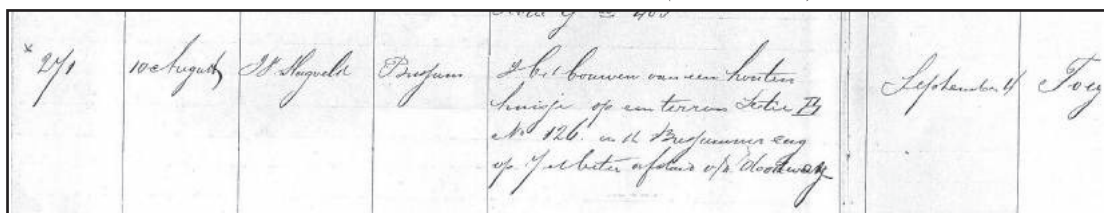 No 400
* 271 10 August J. Hugveld Bussum
't bouwen van een houten
huisje op een terrein Sectie B
No 126 in de Bussummer eng
op 7 et beter afstand v/d doodweg
September 4